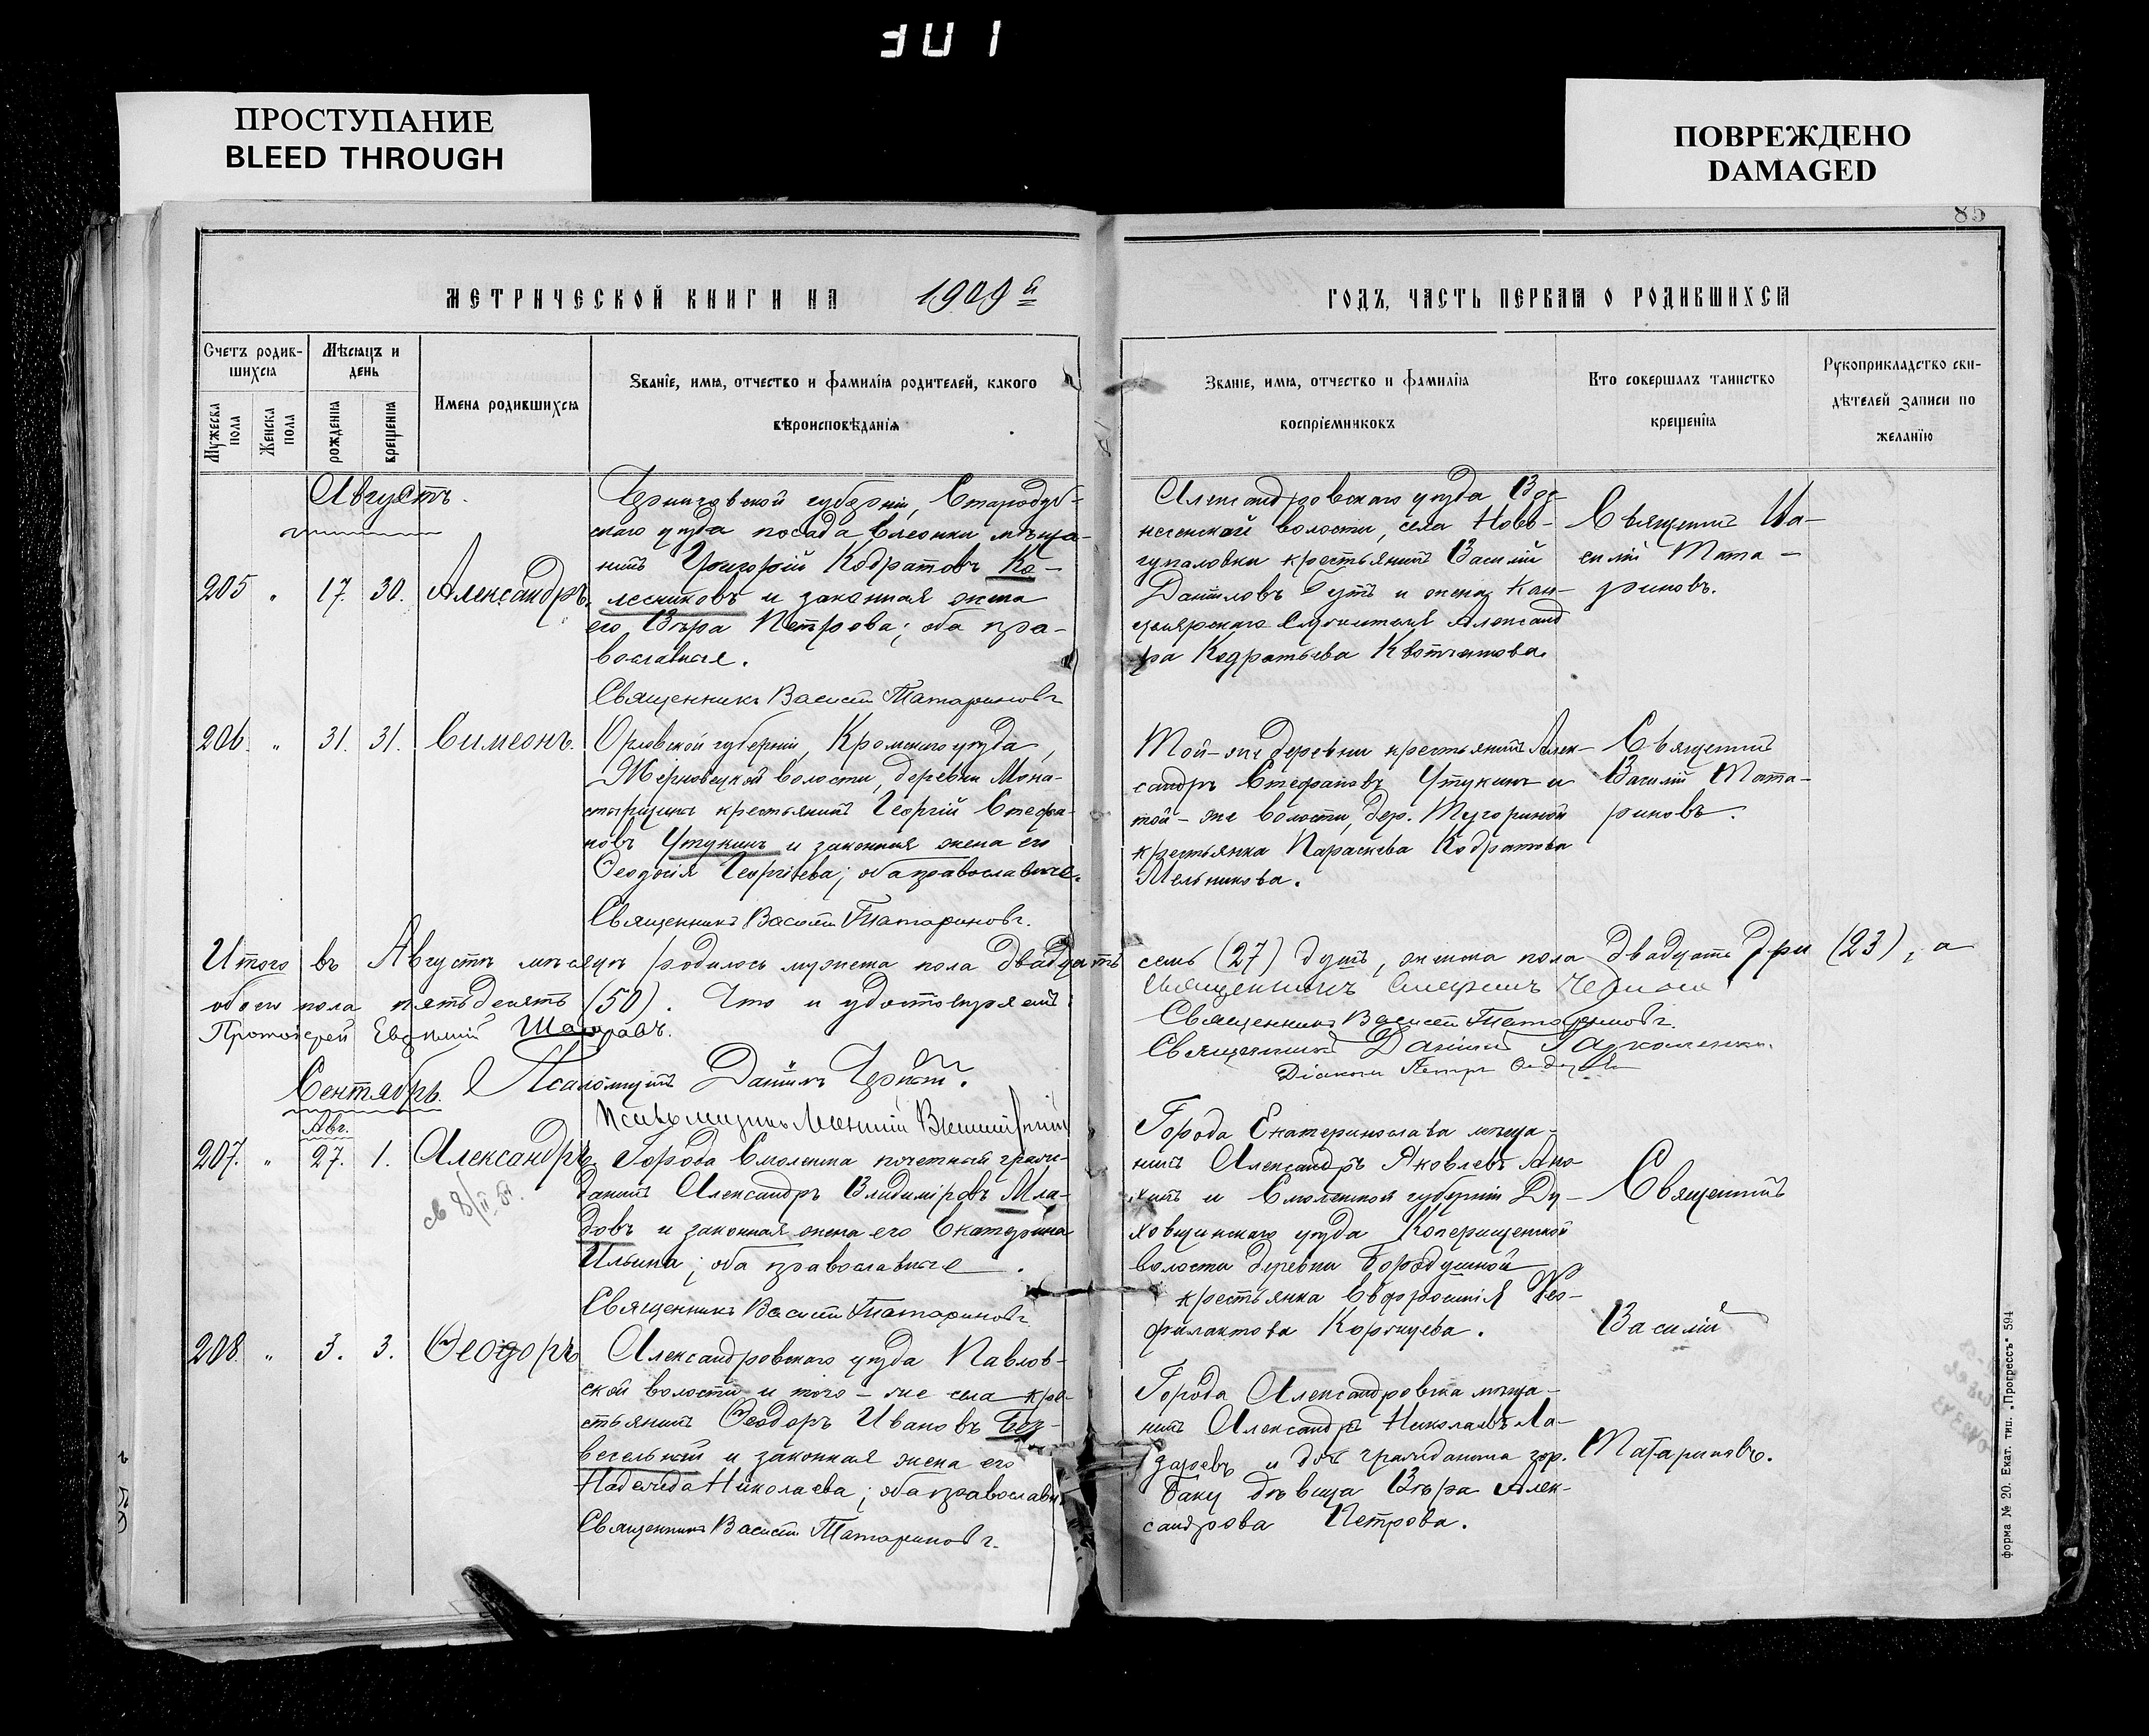 ПРОСТУПАНИЕ
BLEED THROUGH
ПОВРЕЖДЕНО
DAMAGED
85
МЕТРИЧЕСКОЙ КНИГИ НА 1909 й
ГОДЪ, ЧАСТЬ ПЕРВАЯ О РОДИВШИХСЯ
Счетъ родив-
шихся
Мужеска пола
Женска пола
Мѣсяцъ и
день
рожденія
крещенія
Имена родившихся
Званіе, имя, отчество и фамилія родителей, какого
вѣроисповѣданія
Званіе, имя, отчество и фамилія
воспріемниковъ
Кто совершалъ таинство
крещенія
Рукоприкладство сви-
дѣтелей записи по
желанію
Августъ.
205 " 17. 30. Александръ.
Черниговской губерніи, Стародуб-
скаго уѣзда посада Клеонки мѣща-
нинъ Григорій Кодратовъ Ко-
лесниковъ и законная жена
его Вѣра Петрова; оба пра-
вославные.
Священникъ Василій Татариновъ
Александровскаго уѣзда Воз-
несенской волости, села Ново-
гупаловки крестьянинъ Василій
Даниловъ и жена Кан-
Александ
ра Кодратьева
Священникъ Ва-
силій Тата-
риновъ.
206. " 31. 31. Симеонъ.
Орловской губерніи, Кромскаго уѣзда,
волости, деревни Мона-
стырщины крестьянинъ Георгій Стефа-
новъ Утукинъ и законная жена его
Ѳеодосія Георгіева; оба православные.
Священникъ Василій Татариновъ.
Той-же деревни крестьянинъ Алек-
сандръ Стефановъ Утукинъ и
той-же волости, дер.
крестьянка Параскева Кодратова
Мельникова.
Священникъ
Василій Тата-
риновъ.
Итого въ Августѣ мѣсяцѣ родилось мужеска пола двадцать семь (27) душъ, женска пола двадцать три (23), а
обоего пола пятьдесятъ (50). Что и удостовѣряемъ:
Протоіерей Евѳимій
Священникъ
Священникъ Василій Татариновъ.
Священникъ Даніилъ
Діаконъ Петръ
Сентябрь. Псаломщикъ Даніилъ
Псаломщикъ
Авг.
207. " 27. 1. Александръ.
св 8/II 54.
Города Смоленска почетный граж-
данинъ Александръ Владиміровъ Мла-
довъ и законная жена его Екатерина
Ильина; оба православные.
Священникъ Василій Татариновъ
Города Екатеринослава мѣща-
нинъ Александръ Яковлевъ
и Смоленской губерніи Ду-
ховщинскаго уѣзда
волости деревни
крестьянка Евфросинія Ѳео-
филактова
Священникъ
Василій
Татариновъ.
208. " 3. 3. Ѳеодоръ
Александровскаго уѣзда Павлов-
ской волости и того-же села кре-
стьянинъ Ѳеодоръ Ивановъ Без-
весельный и законная жена его
Надежда Николаева; оба православн.
Священникъ Василій Татариновъ.
Города Александровска мѣща-
нинъ Александръ Николаевъ Ла-
заревъ и дочь гражданина гор.
Баку дѣвица Вѣра Алек-
сандрова Петрова.
форма № 20. Екат. тип. „Прогрессъ" 594